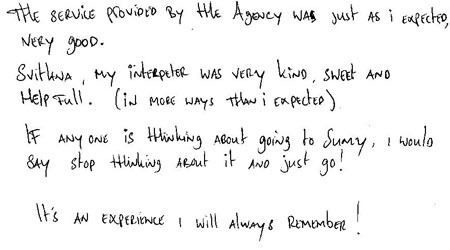 The service provided by the Agency was just as i expected,
very good.
Svitlana, my interpeter was very kind, sweet and
Helpfull. (in more ways than i expected)
If any one is thinking about going to Sumy, i would
say stop thinking about it and just go!
It's an experience i will always remember!